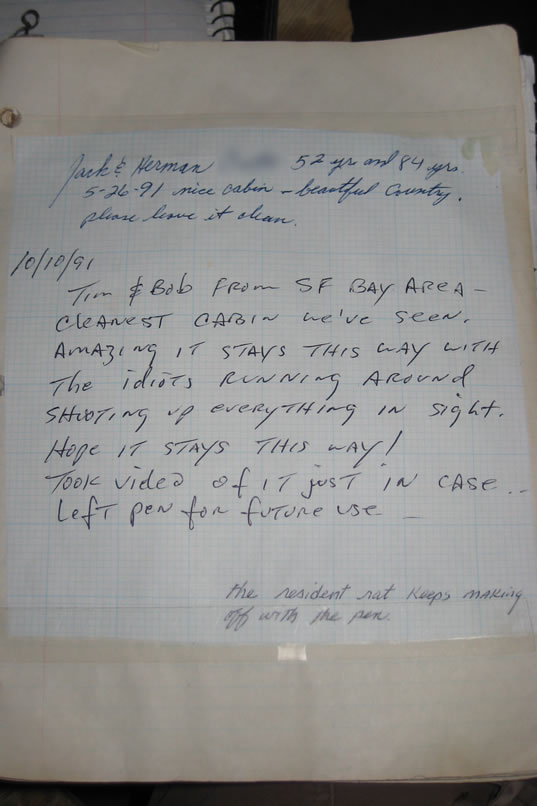 Jack & Herman 52 yrs and 84 yrs.
5-26-91 nice cabin - beautful Country.
please leave it clean.
10/10/91
Tim & Bob From SF BAY AREA -
CLEANEST CABIN we've seen.
AMAZING IT STAYS THIS WAY WITH
The idiots RUNNING AROUND
SHOOTING up everyTHING IN sight.
Hope IT STAYS THIS WAY!
Took video of IT just IN CASE...
Left pen for future use -
the resident rat keeps making
off with the pen.